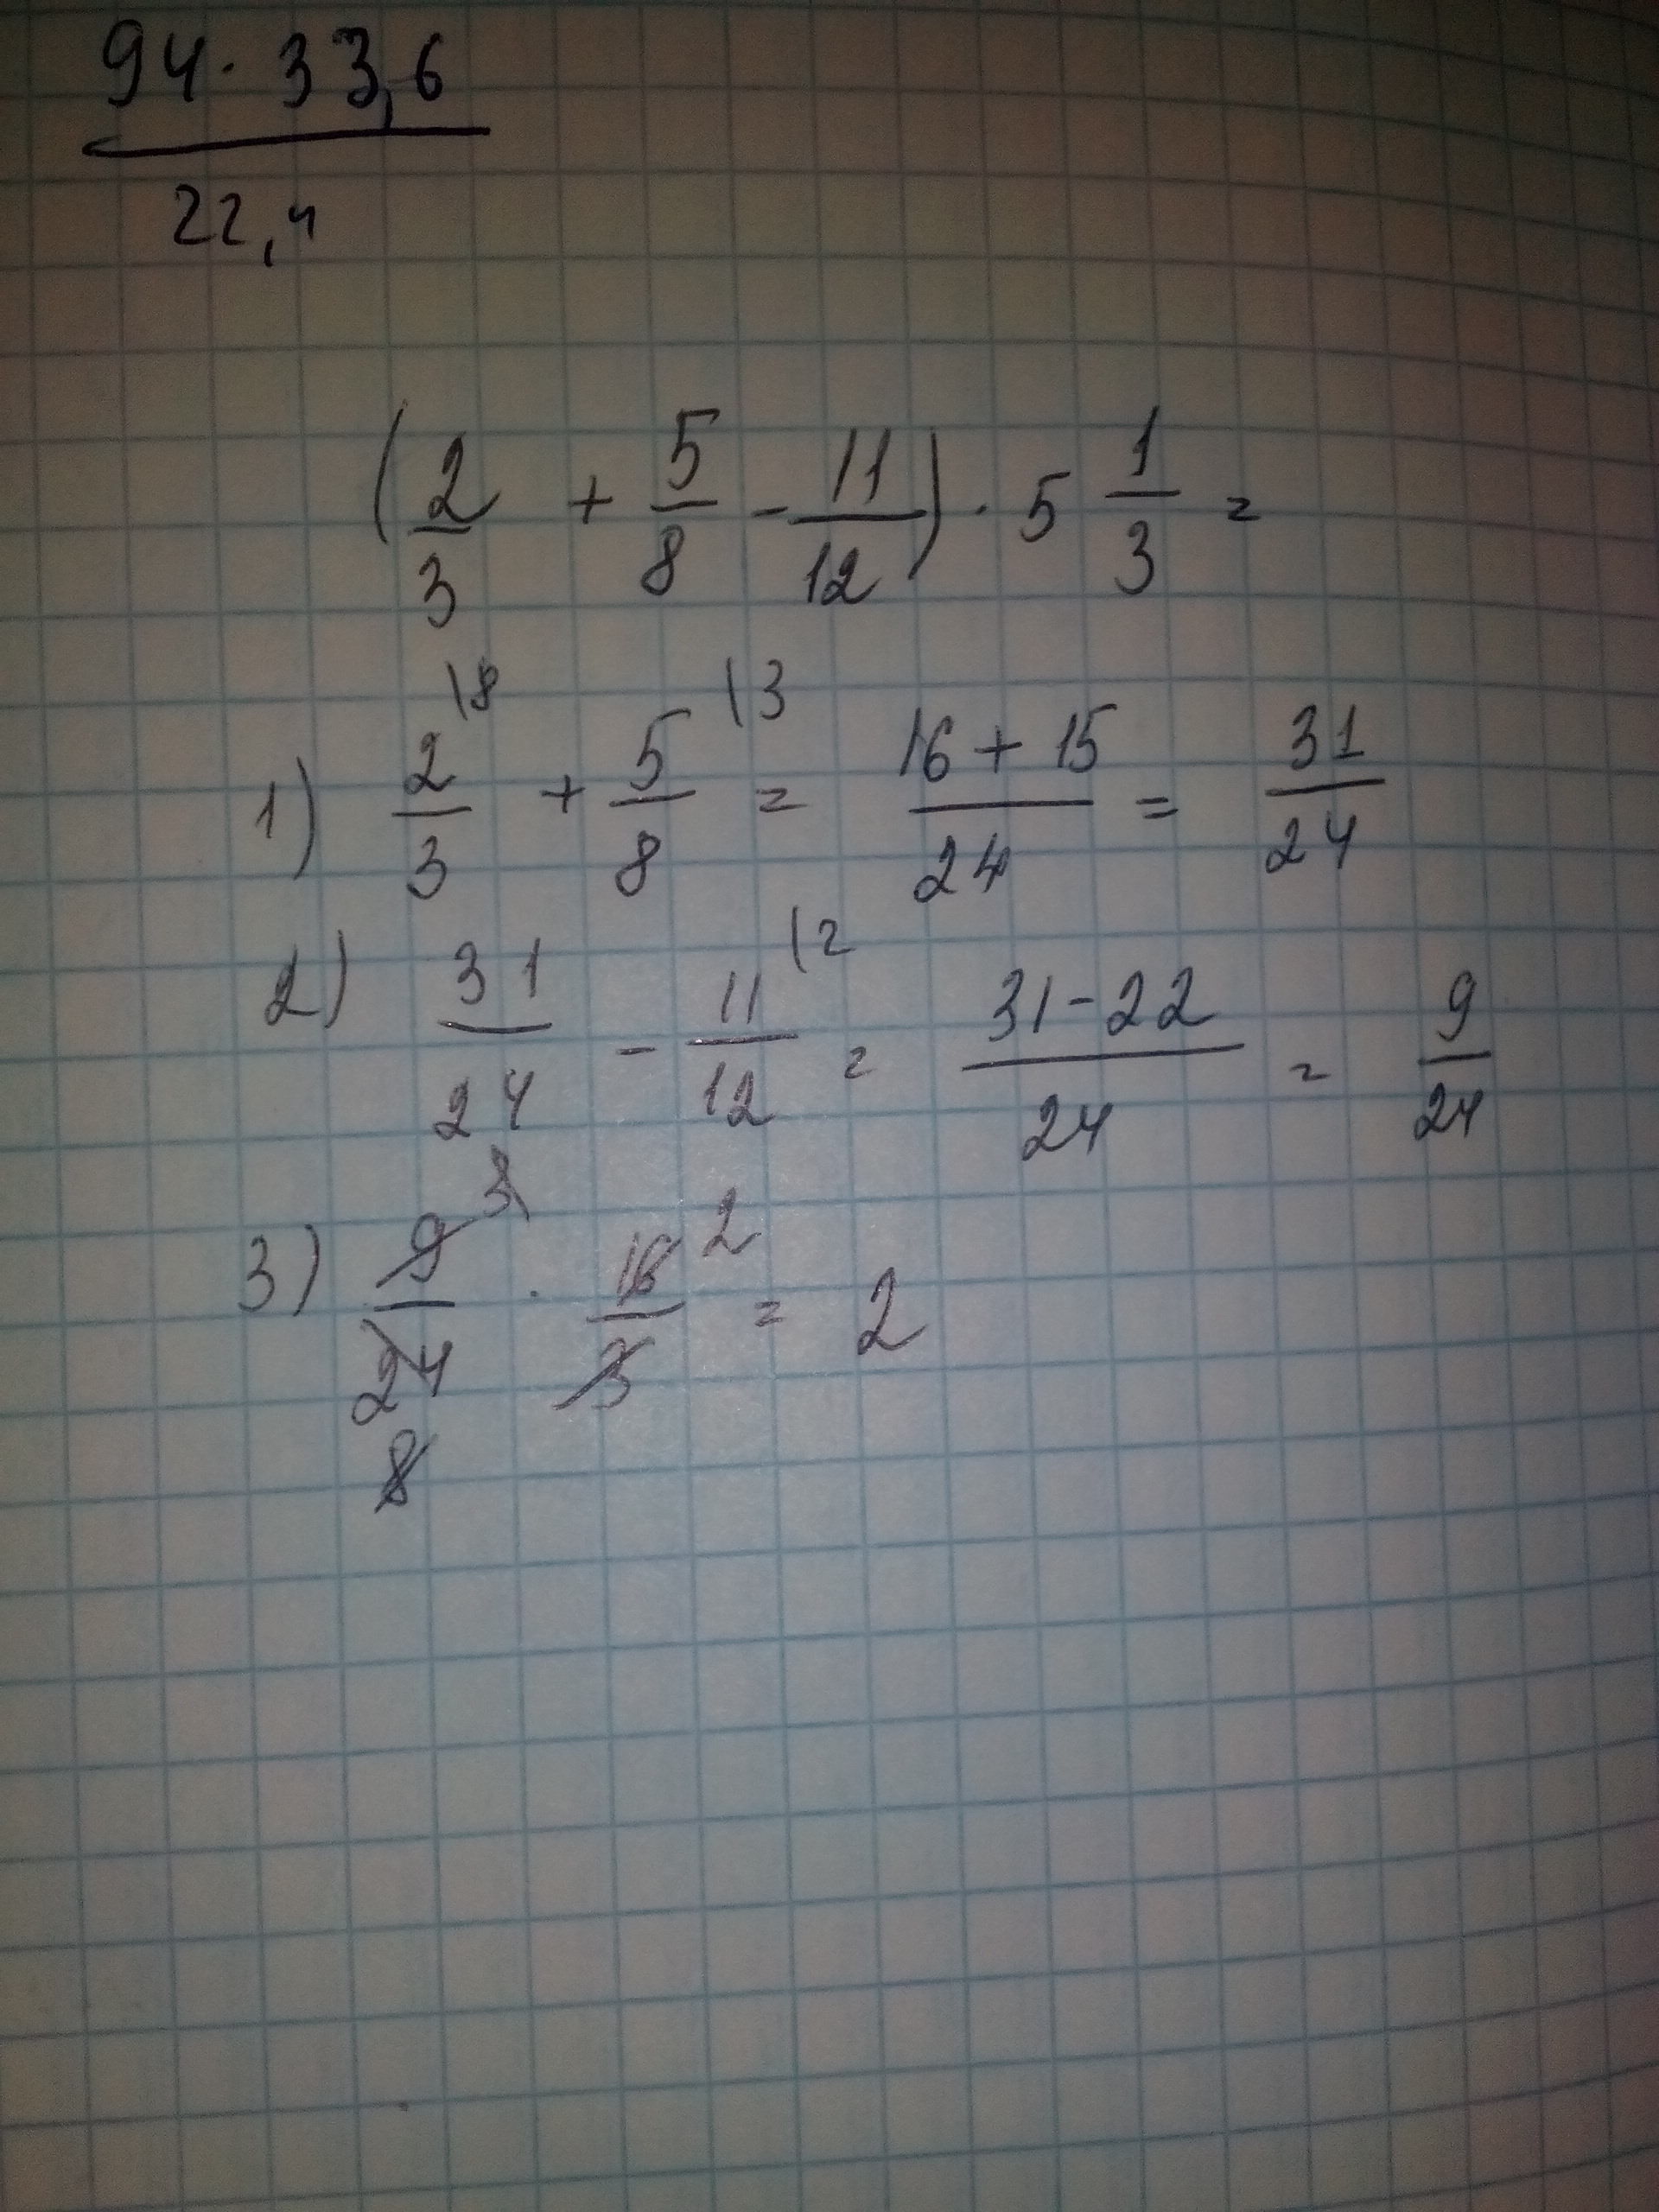 94 · 33,6
22,4
(2/3 + 5/8 - 11/12) · 5 1/3 =
1) 2/3 \8 + 5/8 \3 = 16 + 15/24 = 31/24
2) 31/24 - 11/12 \2 = 31 - 22/24 = 9/24
3) 9 3/24 8 · 16 2/3 = 2